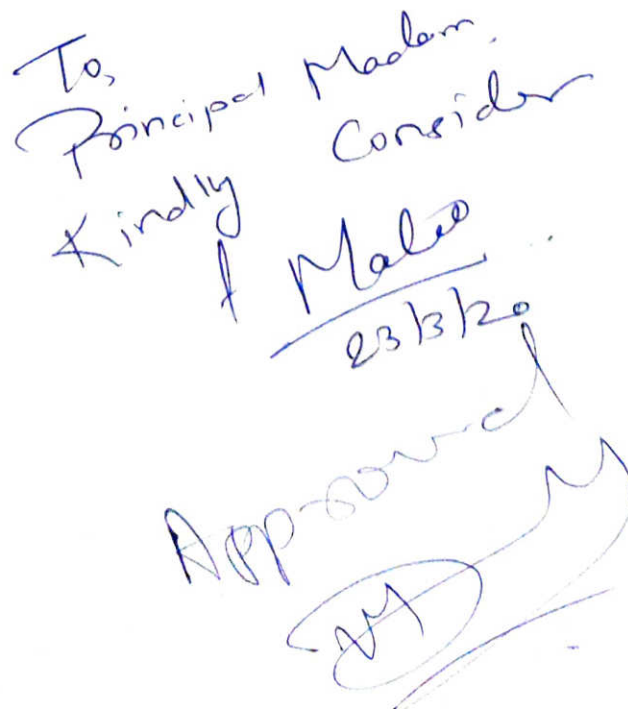 To,
Principal Madam,
Kindly Consider
23/3/20
Approved